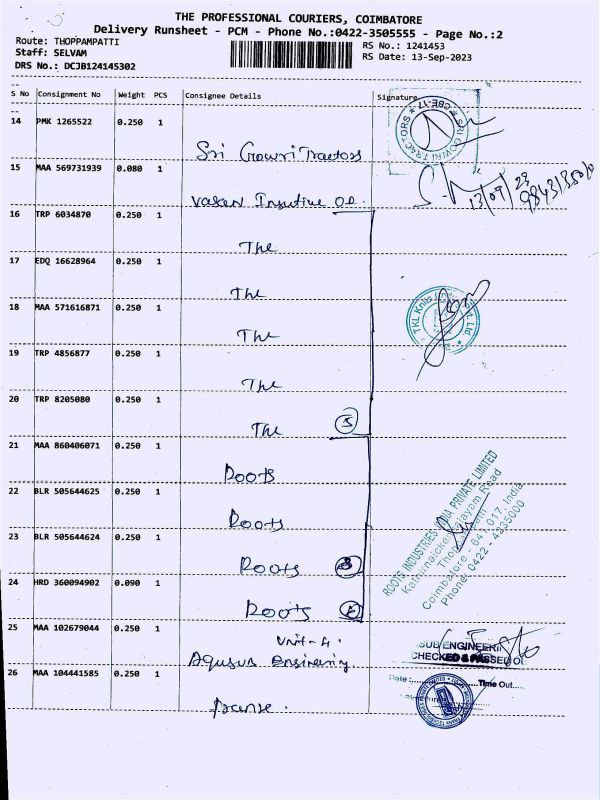 THE PROFESSIONAL COURIERS, COIMBATORE
Delivery Runsheet - PCM - Phone No.:0422-3505555 - Page No.:2
Route: THOPPAMPATTI
RS No.: 1241453
Staff: SELVAM
RS Date: 13-Sep-2023
DRS No.: DCJB124145302
S No Consignment No Weight PCS Consignee Details Signature
14 PMK 1265522 0.250 1
Sri Gowri Tractors
SRI GOWRI TRACTORS ★ CBE-17 ★
15 MAA 569731939 0.080 1
Vasan
13/09/23
16 TRP 6034870 0.250 1
The
17 EDQ 16628964 0.250 1
The
18 MAA 571616871 0.250 1
The
TKL Knits Pvt. Ltd
19 TRP 4856877 0.250 1
The
20 TRP 8205080 0.250 1
The 5
21 MAA 860406071 0.250 1
Roots
22 BLR 505644625 0.250 1
Roots
23 BLR 505644624 0.250 1
Roots 3
24 HRD 360094902 0.090 1
Roots
ROOTS INDUSTRIES INDIA PRIVATE LIMITED
Coimbatore - 641 017, India
Phone: 0422 - 4335000
25 MAA 102679044 0.250 1
Unit-4.
SUB ENGINEERIN
CHECKED & PASSED
26 MAA 104441585 0.250 1
Date : Time Out